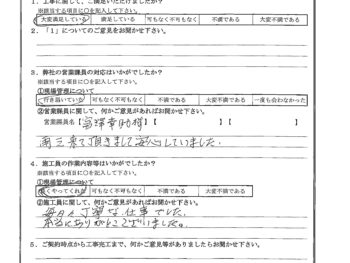 1．工事に関して、ご満足いただけましたか？
※該当する項目に○を記入して下さい。
大変満足している 満足している 可もなく不可もなく 不満である 大変不満である
2．「1」についてのご意見をお聞かせ下さい。
3．弊社の営業課員の対応はいかがでしたか？
※該当する項目に○を記入して下さい。
①現場管理について
行き届いていた 可もなく不可もなく 不満である 大変不満である 一度も会わなかった
②営業課員に関して、何かご意見があればお聞かせ下さい。
営業課員名【 】【 】
来て頂きまして安心していました。
4．施工員の作業内容等はいかがでしたか？
※該当する項目に○を記入して下さい。
①現場管理について
良くやってくれた 可もなく不可もなく 不満である 大変不満である
②施工員に関して、何かご意見があればお聞かせ下さい。
毎日丁寧な仕事でした。
本当にありがとうございました。
5．ご契約時点から工事完工まで、何かご意見等がありましたらお聞かせ下さい。